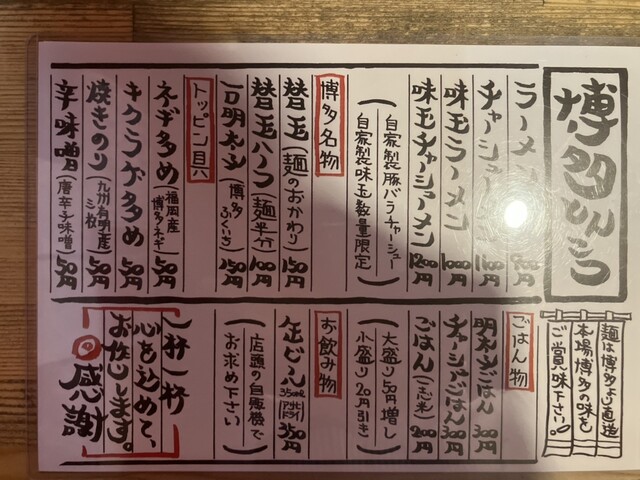 博多とんこつ
麺は博多より直送
本場博多の味を
ご賞味下さい。
ラーメン 900円
チャーシューメン 1100円
味玉ラーメン 1000円
味玉チャーシューメン 1200円
(自家製豚バラチャーシュー
自家製味玉数量限定)
博多名物
替玉(麺のおかわり) 150円
替玉ハーフ(麺半分) 100円
一口明太子(博多ふくいち) 150円
トッピン具
ネギ多め(福岡産博多ネギ) 50円
キクラゲ多め 50円
焼きのり(九州有明産三枚) 50円
辛味噌(唐辛子味噌) 50円
ごはん物
明太子ごはん 300円
チャーシューごはん 300円
ごはん 200円
(大盛り50円増し
小盛り20円引き)
お飲み物
缶ビール 350ml アサヒドライ 350円
(店頭の自販機で
お求め下さい)
一杯一杯
心を込めて、
お作します。
感謝